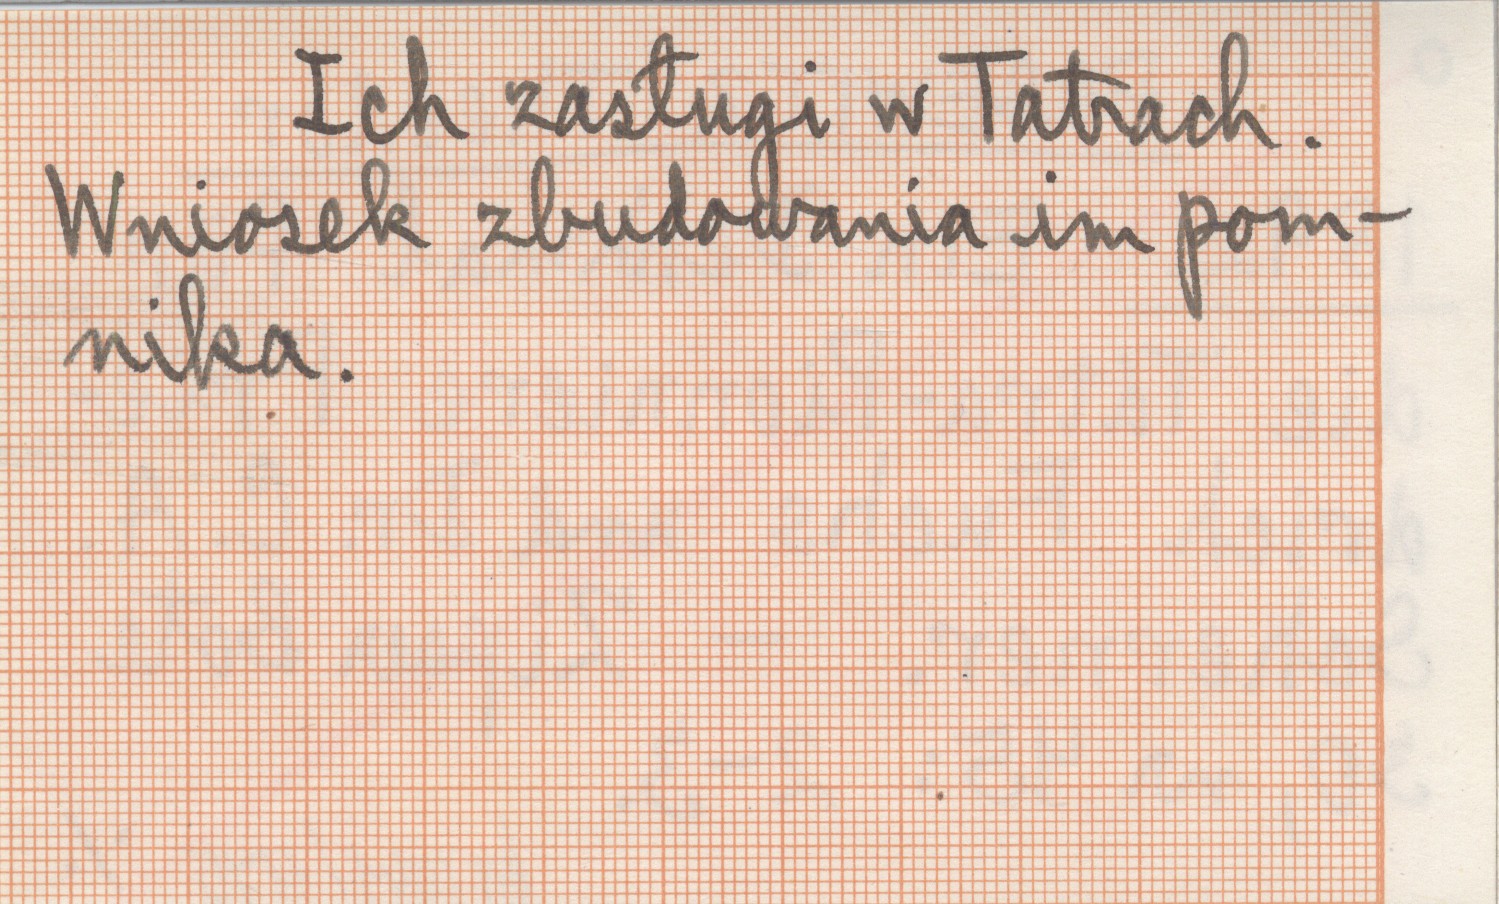 Ich zasługi w Tatrach.
Wniosek zbudowania im pom-
nika.